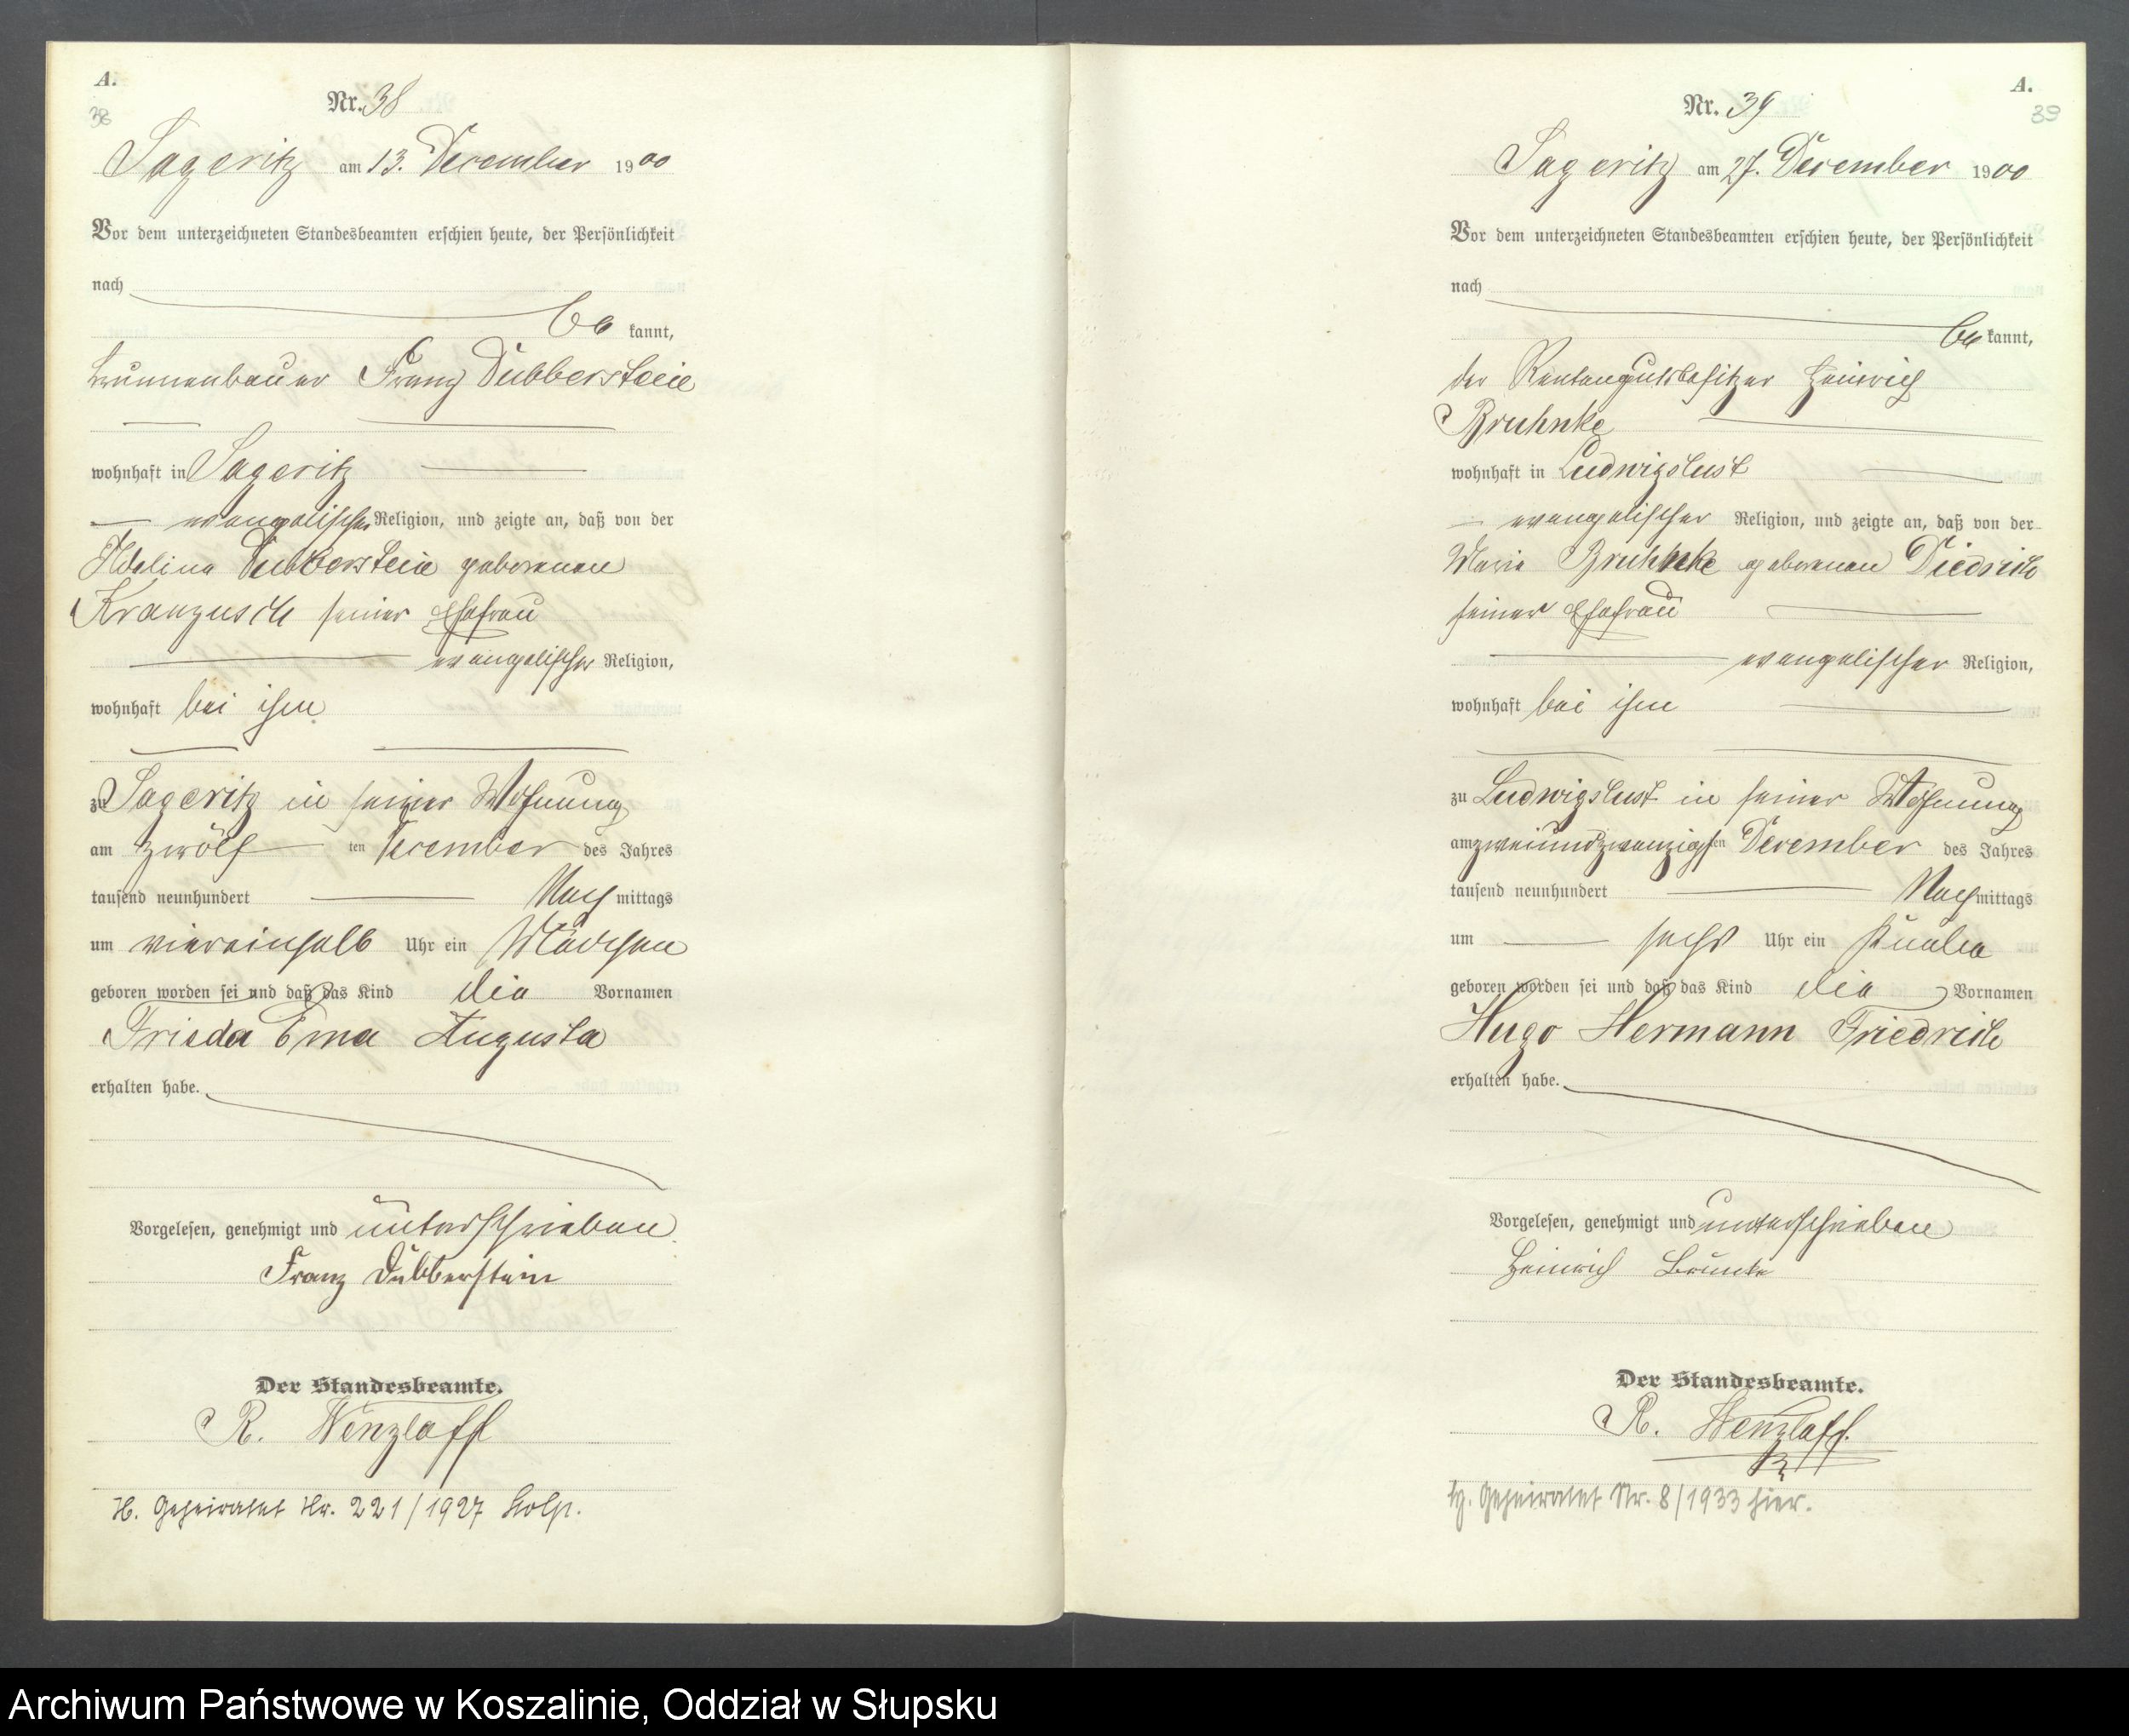 A.
38
Nr. 38
Sageritz am 13. December 1900
Vor dem unterzeichneten Standesbeamten erschien heute, der Persönlichkeit
nach
be kannt,
Brunnenbauer Franz Dubberstein
wohnhaft in Sageritz
evangelischer Religion, und zeigte an, daß von der
Adeline Dubberstein geborenen
Kranzusch seiner Ehefrau
evangelischer Religion,
wohnhaft bei ihm
zu Sageritz in seiner Wohnung
am zwölf ten December des Jahres
tausend neunhundert Nach mittags
um viereinhalb Uhr ein Mädchen
geboren worden sei und daß das Kind die Vornamen
Frieda Erna Augusta
erhalten habe.
Vorgelesen, genehmigt und unterschrieben
Franz Dubberstein
Der Standesbeamte.
R. Wenzlaff
H. Geheiratet Nr. 221/1927 Stolp.
A.
39
Nr. 39
Sageritz am 27. December 1900
Vor dem unterzeichneten Standesbeamten erschien heute, der Persönlichkeit
nach
be kannt,
der Rentengutsbesitzer Heinrich
Bruhnke
wohnhaft in Ludwigslust
evangelischer Religion, und zeigte an, daß von der
Marie Bruhnke geborenen Diedrich
seiner Ehefrau
evangelischer Religion,
wohnhaft bei ihm
zu Ludwigslust in seiner Wohnung
am zweiundzwanzigsten December des Jahres
tausend neunhundert Nach mittags
um sechs Uhr ein Knabe
geboren worden sei und daß das Kind die Vornamen
Hugo Hermann Friedrich
erhalten habe.
Vorgelesen, genehmigt und unterschrieben
Heinrich Brunke
Der Standesbeamte.
R. Wenzlaff.
Geheiratet Nr. 8/1933 hier.
Archiwum Państwowe w Koszalinie, Oddział w Słupsku